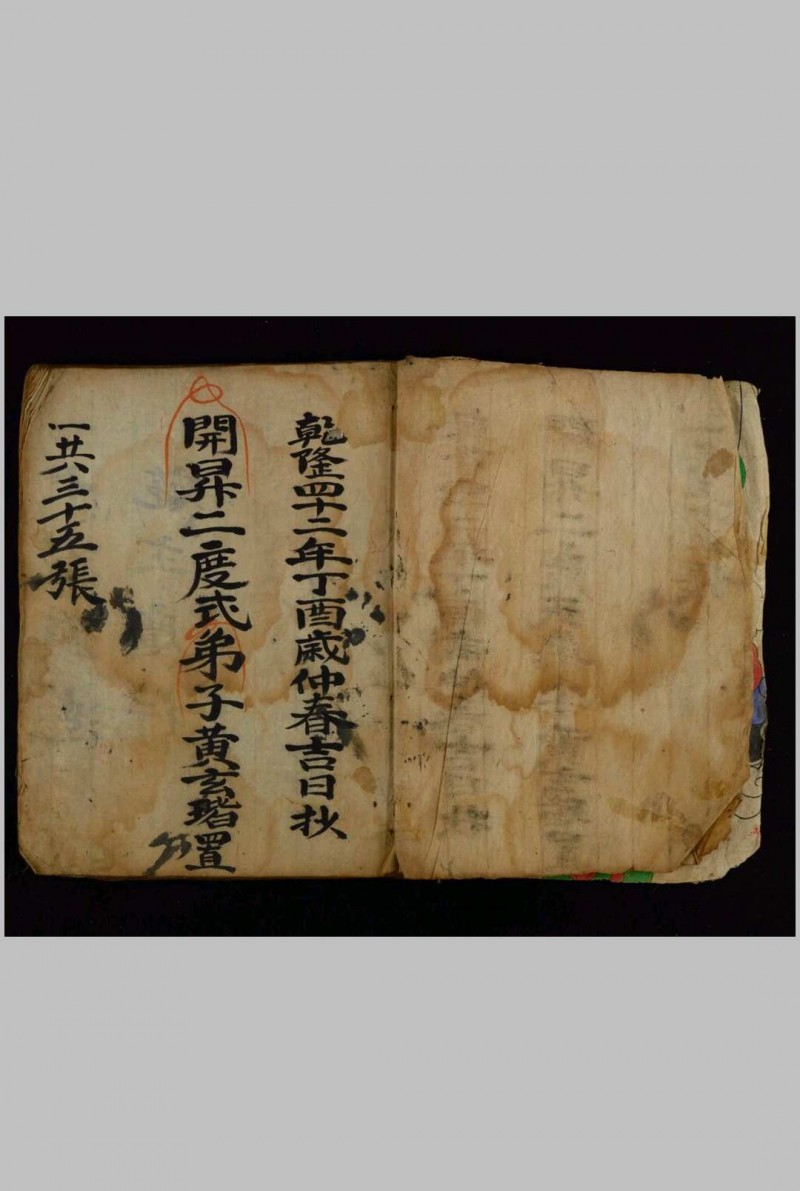 乾隆四十二年丁酉歲仲春吉日抄
開昇二度式弟子黃玄堦置
一共八三十五張